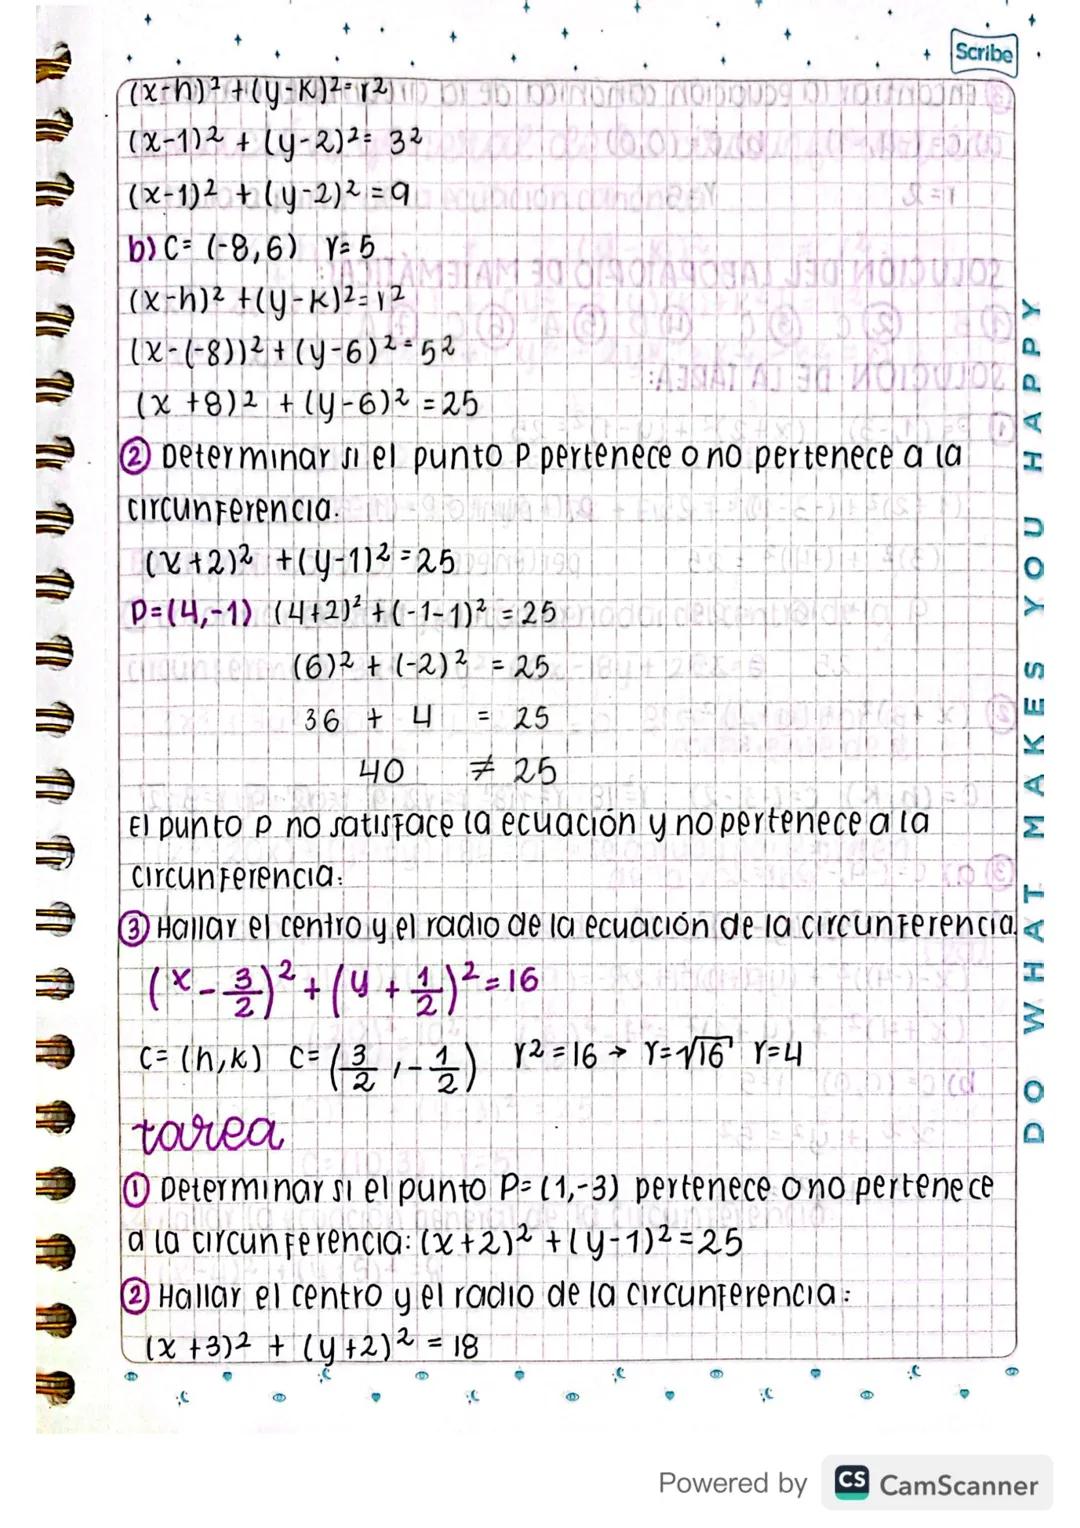 Scribe
(x-h)²+(y-k)²=r²
(x-1)² + (y-2)²= 3²
(x-1)² + (y-2)² = 9
b) C= (-8,6) r= 5
(x-h)² +(y-k)²= r²
(x-(-8))² + (y-6)² = 5²
(x +8)² + (y-6)² = 25
② Determinar si el punto P pertenece o no pertenece a la
circunferencia.
(x+2)² +(y-1)² = 25
P=(4,-1) (4+2)² +(-1-1)² = 25
(6)² + (-2)² = 25
36 + 4 = 25
40 ≠ 25
El punto p no satisface la ecuación y no pertenece a la
circunferencia.
③ Hallar el centro y el radio de la ecuación de la circunferencia.
(x - 3/2)² + (y + 1/2)² = 16
C= (h,k) C= (3/2, -1/2) r² = 16 → r=√16 r=4
tarea
① Determinar si el punto P= (1,-3) pertenece o no pertenece
a la circunferencia: (x+2)² +(y-1)² = 25
② Hallar el centro y el radio de la circunferencia:
(x +3)² + (y+2)² = 18
DO WHAT MAKES YOU HAPPY
Powered by CS CamScanner